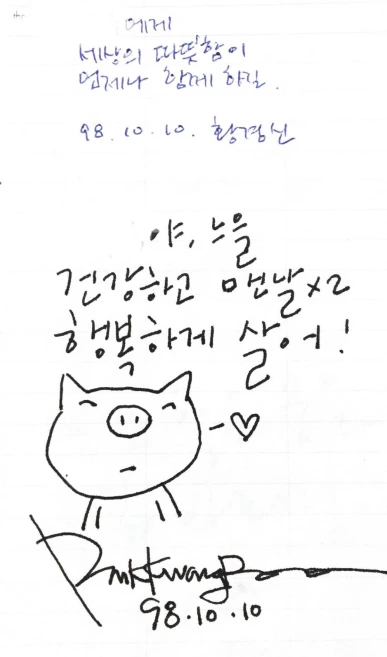 에게
세상의 따뜻함이
언제나 함께 하길.
98.10.10. 황경신
야, 늘
건강하고 맨날x2
행복하게 살어!
98.10.10